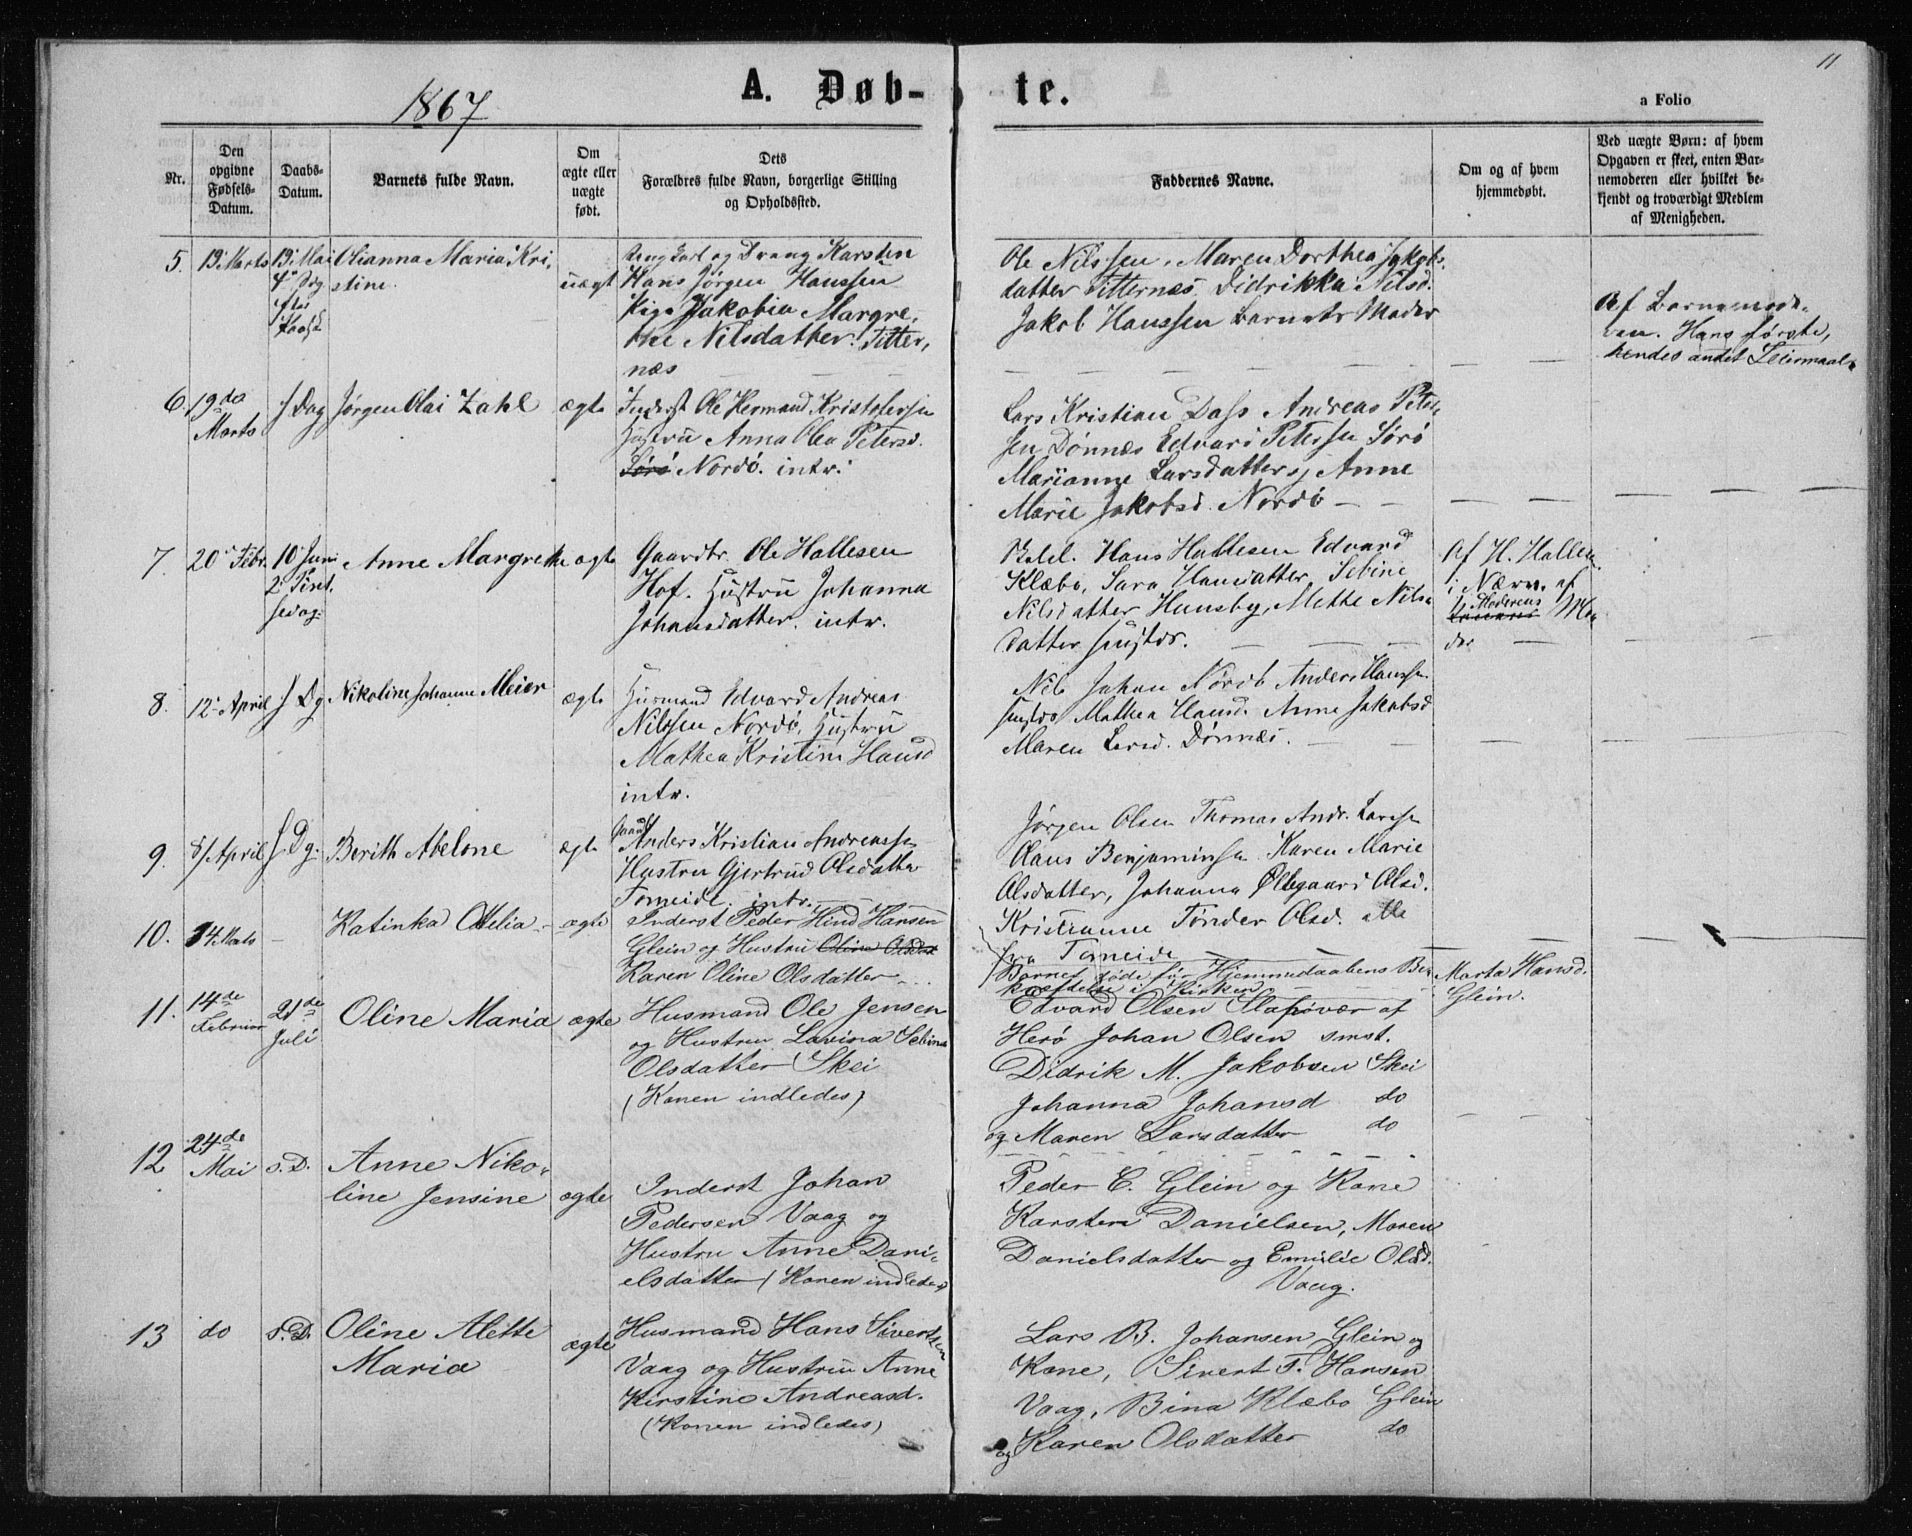 11
1867
A. Døb-
te.
a Folio
Nr.
Den
opgivne
Fødsels-
Datum.
Daabs-
Datum.
Barnets fulde Navn.
Om
ægte eller
uægte
født.
Dets
Forældres fulde Navn, borgerlige Stilling
og Opholdssted.
Faddernes Navne.
Om og af hvem
hjemmedøbt.
Ved uægte Børn: af hvem
Opgaven er skeet, enten Bar-
nemoderen eller hvilket be-
kjendt og troværdigt Medlem
af Menigheden.
5.
19. Marts
19. Mai
4. S.
efter
Olianna Maria Kri-
stine.
uægt
Ungkarl og Dreng Karsten
Hans Jørgen Hanssen
Pige Jakobia Margre-
the Nilsdatter. Titter,
næs
Ole Nilssen, Maren Dorthea Jakobs-
datter Titternæs Didrikka Nilsd.
Jakob Hanssen Barnets Moder
Af Barnemode-
ren. Hans første,
hendes andet Leiermaal.
6.
19de
Marts
s Dag
Jørgen Olai Zahl
ægte
Inderst Ole Hermand Kristofersen
Hustru Anna Olea Petersd.
Sørö Nordö. intr.
Lars Kristian Dass Andreas Peter-
sen Dönnæs Edvard Peterssen Sörö
Marianne Larsdatter, Anne
Marie Jakobsd. Nordö
7.
20. Febr.
10 Juni
2. Pint-
sedag
Anne Margrethe
ægte
Gaardbr. Ole Hallesen
Hof. Hustru Johanna
Johansdatter. intr.
Hans Hallesen Edvard
Klæbo, Sara Hansdatter, Sebine
Nilsdatter Hunsby, Mette Nils-
datter
Af H. Hallesen
i Nærv. af
Moderens Mo-
der
8.
12. April
s Dg
Nikoline Johanna Meier
ægte
Husmand Edvard Andreas
Nilssen Nordö, Hustru
Mathea Kristine Hansd
intr.
Nils Johan Nordö Anders Hanssen
Mathea Hansd. Anne Jakobsd
Maren Larsd. Dönnæs.
9.
8/ April
s Dg.
Berith Abelone
ægte
Gaardbr.
Anders Kristian Andreassen
Hustru Gjertrud Olsdatter
Torneide. intr.
Jørgen Olsen Thomas Andr. Larssen
Claus Benjaminsen Karen Marie
Olsdatter, Johanna Ølegaard Olsd.
Kristianne Tønder Olsd. alle
fra Torneide
10.
14 Marts
Katinka Otelia
ægte
Inderst Peder Hind Hansen
Glein og Hustru Oline Olsdat
Karen Oline Olsdatter
Barnet døde før Hjemmedaabens Be-
kræftelse i Kirken
Marta Hansd.
Glein.
11.
14de
Februar
21de
Juli
Oline Maria
ægte
Husmand Ole Jensen
og Hustru Lavina Sebina
Olsdatter Skei
(Konen indledes)
Edvard Olsen Slapøvær af
Herö Johan Olsen smst.
Didrik M. Jakobsen Skei
Johanna Johansd do
og Maren Larsdatter do
12
24de
Mai
s. D.
Anne Niko-
line Jensine
ægte
Inderst Johan
Pedersen Vaag og
Hustru Anne Dani-
elsdatter (Konen indledes)
Peder C. Glein og Kone
Karsten Danielsen, Maren
Danielsdatter og Emilie Olsd.
Vaag.
13
do
s. D.
Oline Alette
Maria
ægte
Husmand Hans Sivertsen
Vaag og Hustru Anne
Kirstine Andreasd.
(Konen indledes)
Lars B. Johansen Glein og
Kone, Sivert T. Hansen
Vaag, Bina Klæbo Glein
og Karen Olsdatter do